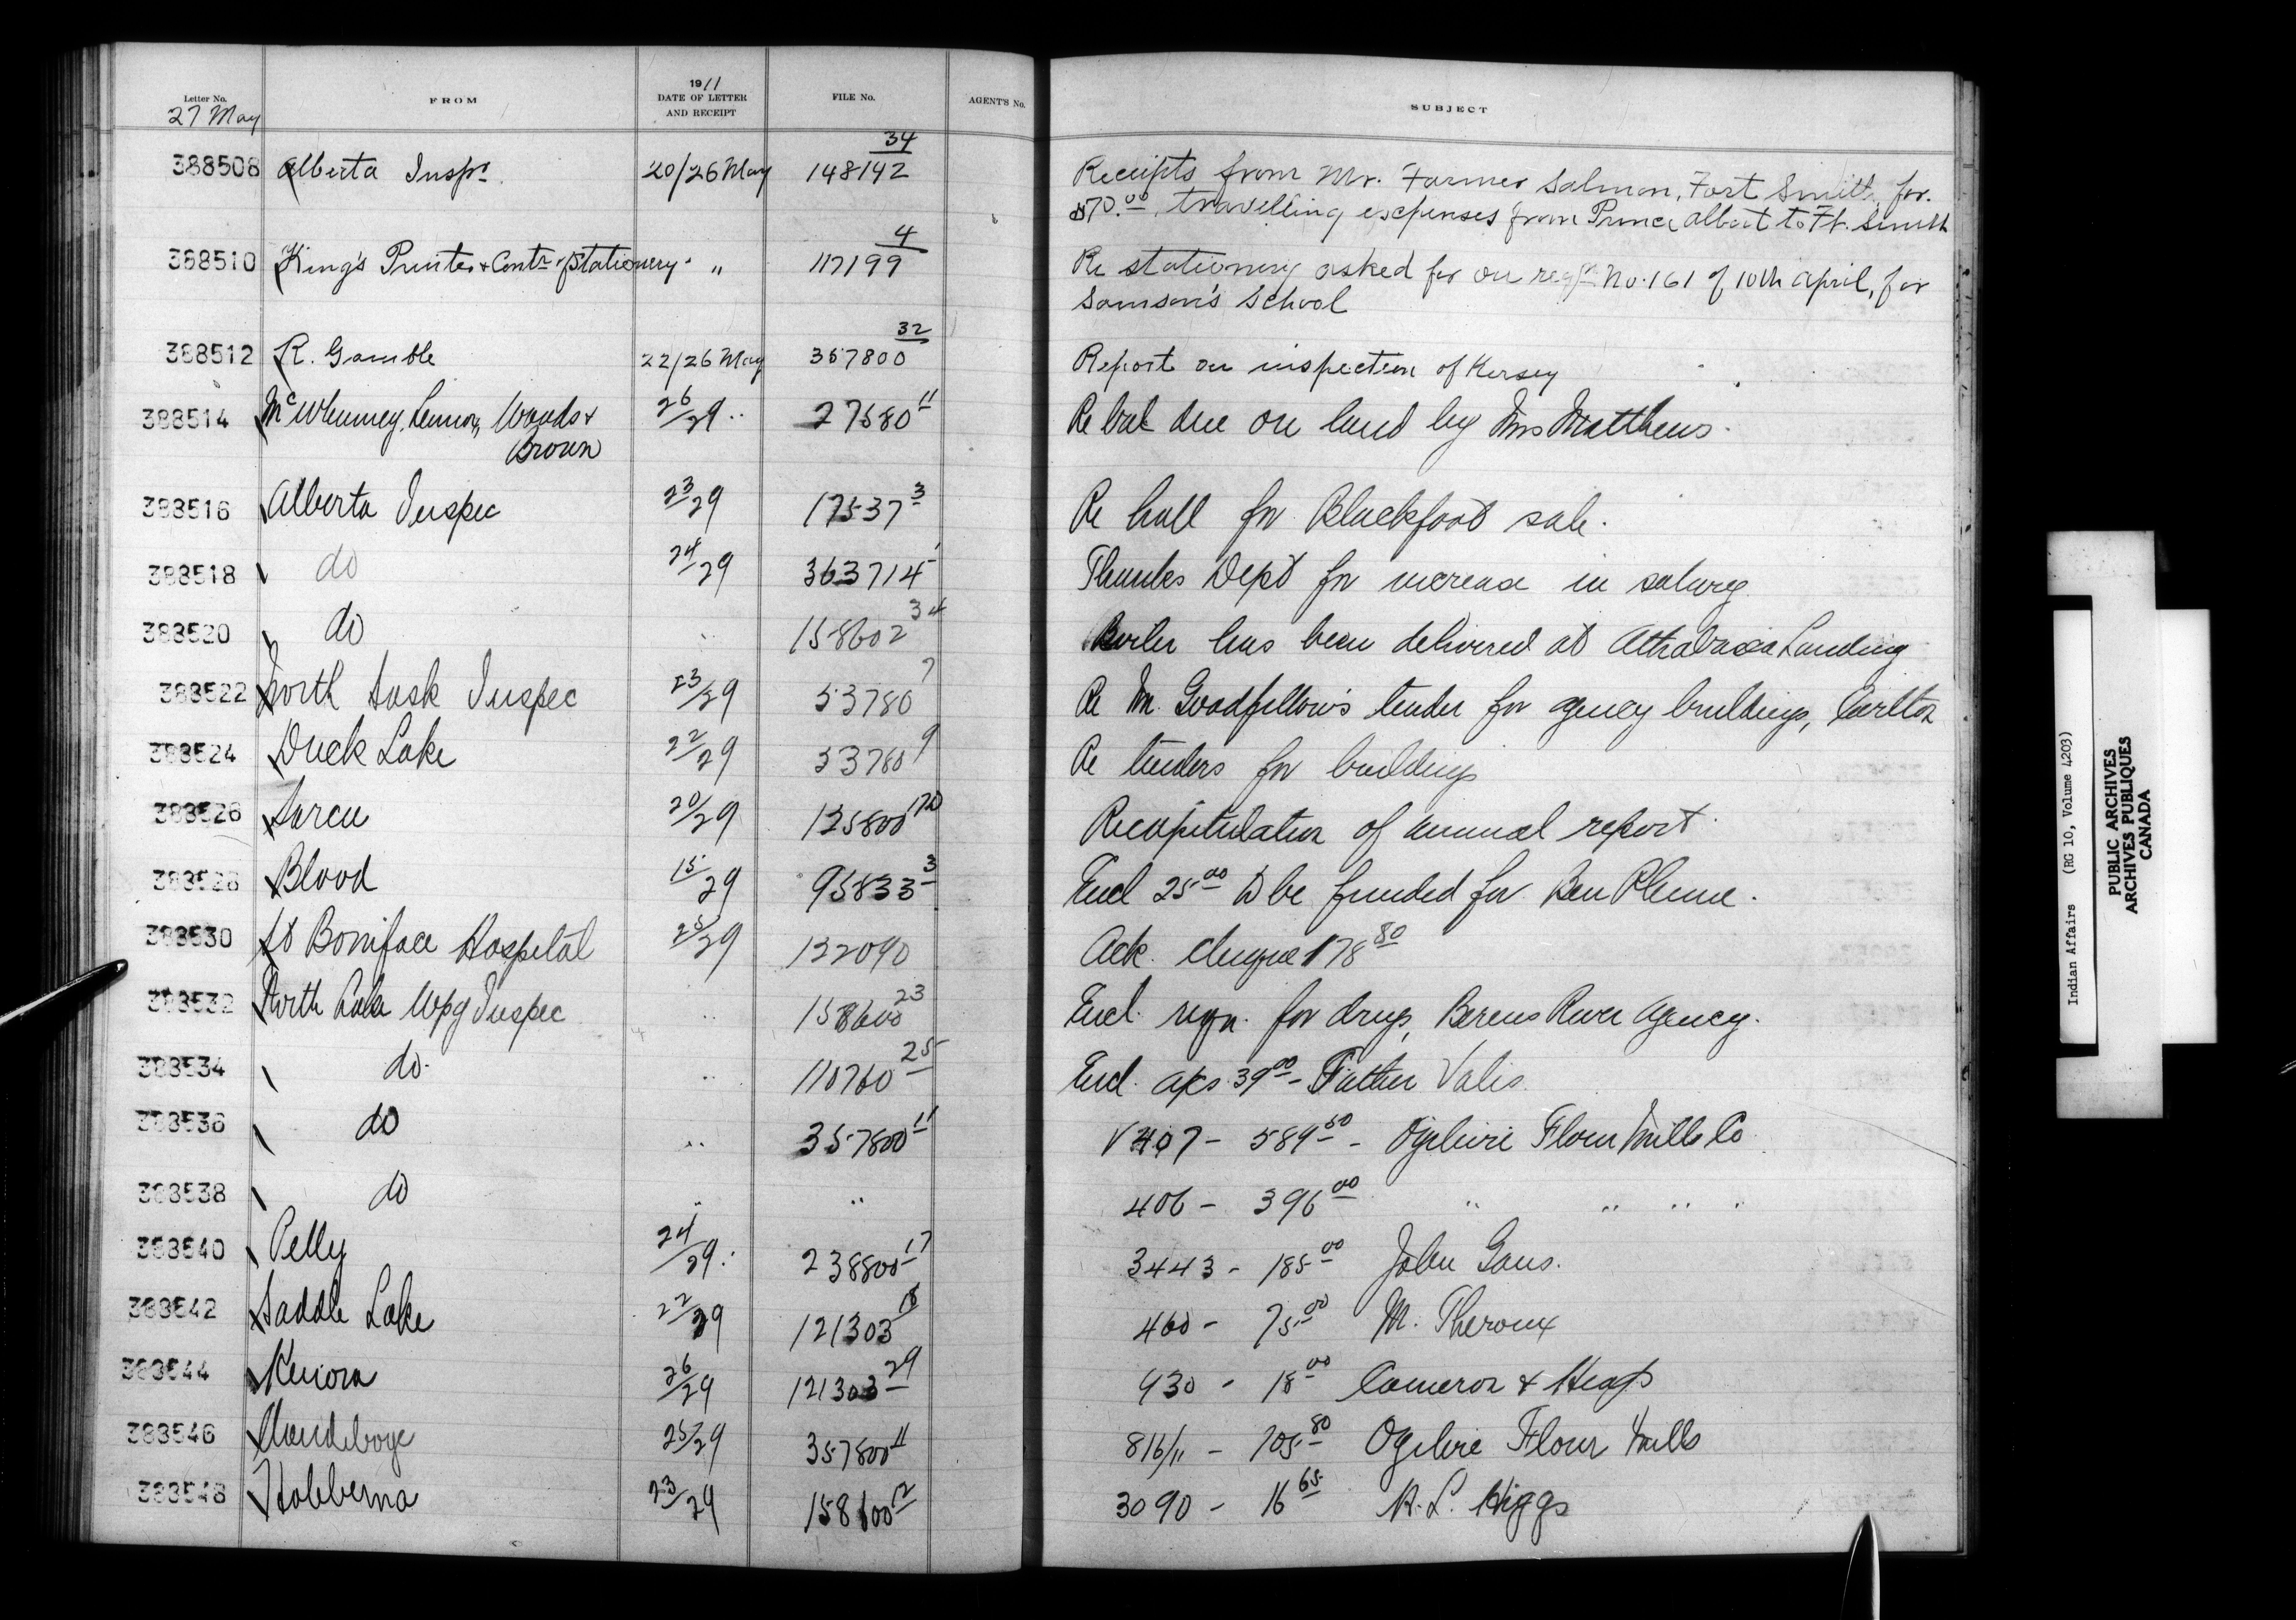 Letter No. FROM 1911 DATE OF LETTER AND RECEIPT FILE No. AGENT'S No. SUBJECT
27 May
388508 Alberta Inspr. 20/26 May 148142 34 Receipts from Mr. Farmer Salmon, Fort Smith, for
$70.00, travelling expenses from Prince Albert to Ft. Smith
388510 King's Printer & Contr of Stationery " 117199 4 Re stationery asked for on reqn No. 161 of 10th April, for
Samson's School
388512 R. Gamble 22/26 May 357800 32 Report on inspection of Kersey
388514 McWhinney, Lennox, Woods & 26/29 " 27580 11 Re bal due on land by Mrs Matthews.
Brown
388516 Alberta Inspec 23/29 17537 3 Re hall for Blackfoot sale.
388518 do 24/29 363714 1 Thanks Dept for increase in salary
388520 do " 158602 34 Boiler has been delivered at Athabasca Landing
388522 North Sask Inspec 23/29 53780 7 Re M. Goodfellow's tender for agency buildings, Carlton
388524 Duck Lake 22/29 53780 9 Re tenders for buildings
388526 Sarcee 20/29 135800 Recapitulation of annual report.
388528 Blood 15/29 95833 3 Encl 25.00 to be funded for Ben Plume.
388530 St Boniface Hospital 25/29 132090 Ack. cheque 178 80
388532 North Lake Wpg Inspec " 158600 23 Encl. reqn. for drugs, Berens River Agency.
388534 do. " 110760 25 Encl. a/cs 39 00 - Father Valis.
388536 do " 357800 11 V 407 - 589 50 - Ogilvie Flour Mills Co
388538 do " " 406 - 396 00 " " " "
388540 Pelly 24/29. 238800 17 3443 - 185 00 John Gaus.
388542 Saddle Lake 22/29 121303 18 460 - 75 00 M. Theroux
388544 Kenora 26/29 121303 29 930 - 18 00 Cameron & Heap
388546 Clandeboye 25/29 357800 11 816/11 - 705 80 Ogilvie Flour Mills
388548 Hobbema 23/29 158600 12 3090 - 16 65 R. L. Higgs
Indian Affairs (RG 10, Volume 4203)
PUBLIC ARCHIVES
ARCHIVES PUBLIQUES
CANADA